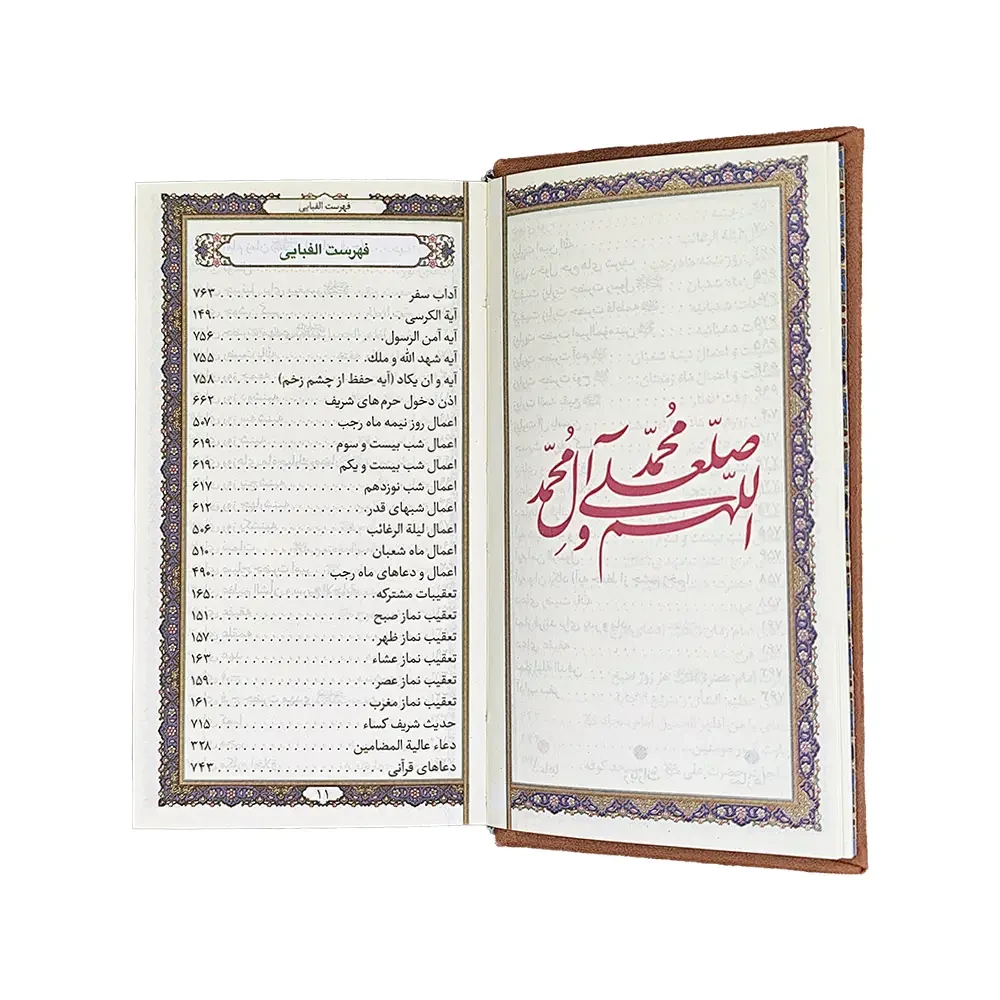 اللهم صل علی محمد و آل محمد
فهرست الفبایی
فهرست الفبایی
آداب سفر ۷۶۳
آیة الکرسی ۱۴۹
آیه آمن الرسول ۷۵۶
آیه شهد الله و ملك ۷۵۵
آیه و ان یکاد (آیه حفظ از چشم زخم) ۷۵۸
اذن دخول حرم‌های شریف ۶۶۲
اعمال روز نیمه ماه رجب ۵۰۷
اعمال شب بیست و سوم ۶۱۹
اعمال شب بیست و یکم ۶۱۹
اعمال شب نوزدهم ۶۱۷
اعمال شبهای قدر ۶۱۲
اعمال لیلة الرغائب ۵۰۶
اعمال ماه شعبان ۵۱۰
اعمال و دعاهای ماه رجب ۴۹۰
تعقیبات مشترکه ۱۶۵
تعقیب نماز صبح ۱۵۱
تعقیب نماز ظهر ۱۵۷
تعقیب نماز عشاء ۱۶۳
تعقیب نماز عصر ۱۵۹
تعقیب نماز مغرب ۱۶۱
حدیث شریف کساء ۷۱۵
دعاء عالیة المضامین ۳۲۸
دعاهای قرآنی ۷۴۳
۱۱